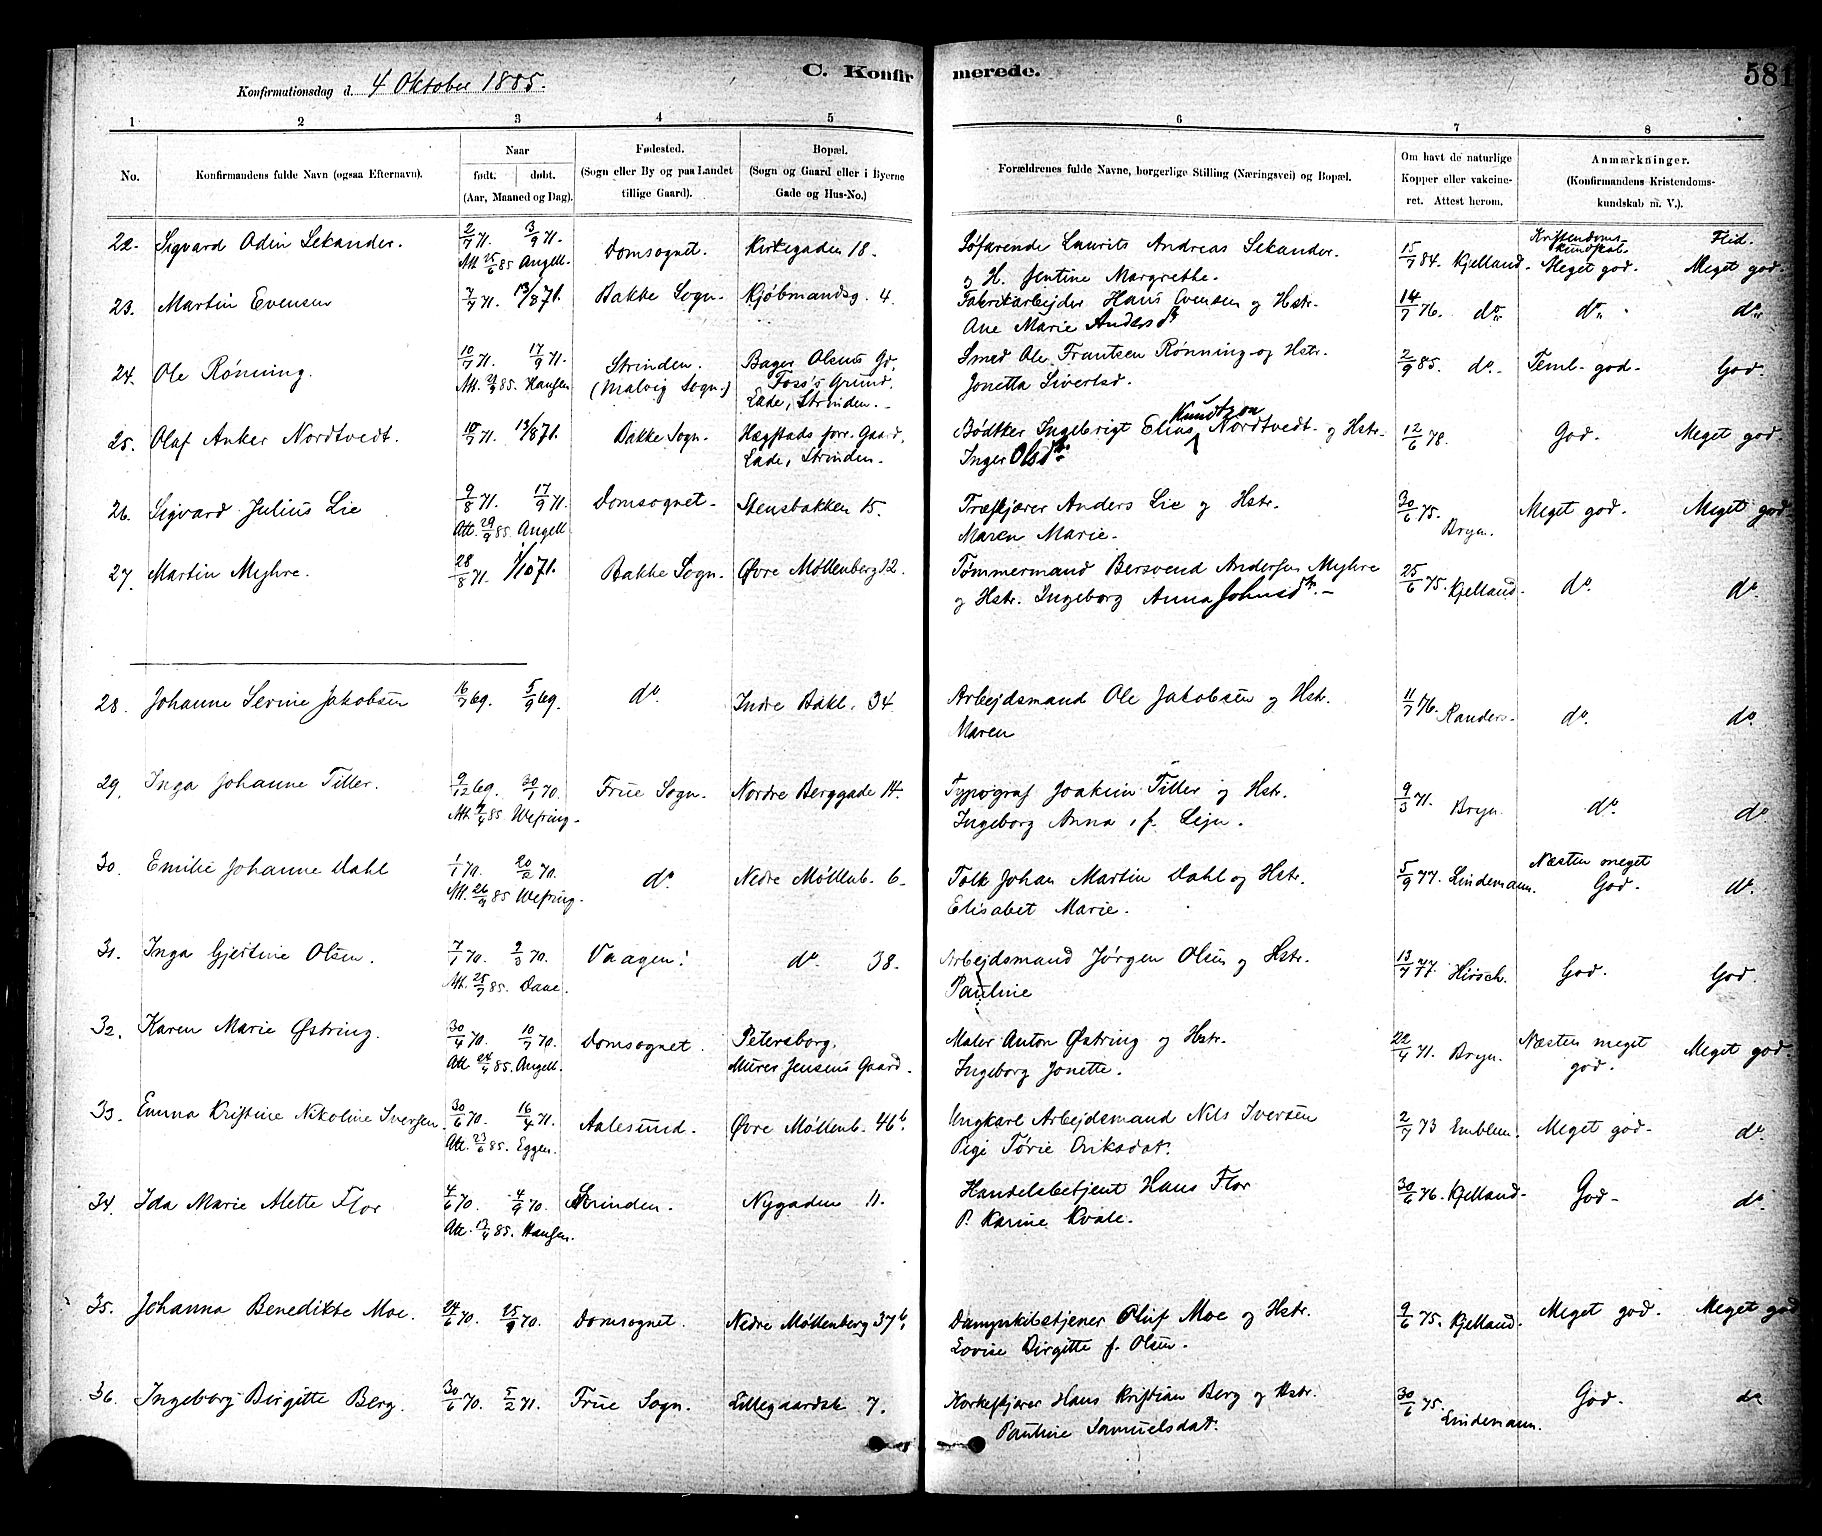 C. Konfirmerede.
581
Konfirmationsdag d. 4 Oktober 1885.
1 2 3 4 5 6 7 8
No.
Konfirmandens fulde Navn (ogsaa Efternavn).
Naar
født. døbt.
(Aar, Maaned og Dag).
Fødested.
(Sogn eller By og paa Landet
tillige Gaard).
Bopæl.
(Sogn og Gaard eller i Byerne
Gade og Hus-No.)
Forældrenes fulde Navne, borgerlige Stilling (Næringsvei) og Bopæl.
Om havt de naturlige
Kopper eller vakcine-
ret. Attest herom.
Anmærkninger.
(Konfirmandens Kristendoms-
kundskab m. V.).
Kristendoms- Flid.
kundskab.
22. Sigvard Odin Sekander. 2/7 71. 3/9 71. Domsognet. Kirkegaden 18. Søfarende Laurits Andreas Sekander. 15/7 84. Kjelland. Meget god. Meget god.
Att. 25/6 85 Angell. og H. Jentine Margrethe.
23. Martin Evensen 7/7 71. 13/8 71. Bakke Sogn. Kjøbmandsg. 4. Fabrikarbejder Hans Evensen og Hstr. 14/7 76. do. do. do.
Ane Marie Andersd.
24. Ole Rønning. 10/7 71. 17/9 71. Strinden. Bager Olsens Gd. Smed Ole Frantsen Rønning og Hstr. 2/9 85. do. Teml. god. God.
Att. 21/9 85. Hansen. (Malvig Sogn.) Foss's Grund. Jonetta Sivertsd.
Lade, Strinden.
25. Olaf Anker Nordtvedt. 10/7 71. 13/8 71. Bakke Sogn. Hægstads forr. Gaard, Bødtker Ingebrigt Elias Knudtzon Nordtvedt og Hstr. 12/6 78. God. Meget god.
Lade, Strinden. Inger Olsdtr.
26. Sigvard Julius Lie 9/8 71. 17/9 71. Domsognet. Stensbakken 15. Træskjærer Anders Lie og Hstr. 30/6 75. Bryn. Meget god. Meget god.
Att. 29/9 85 Angell. Maren Marie.
27. Martin Myhre. 28/8 71. 1/10 71. Bakke Sogn. Øvre Møllenberg 12. Tømmermand Bersvend Andersen Myhre 25/6 75. Kjelland. do. do.
og Hstr. Ingeborg Anna Johnsdtr.
28. Johanne Serine Jakobsen 16/7 69. 5/9 69. do. Indre Bakl. 34. Arbejdsmand Ole Jakobsen og Hstr. 11/7 76. Randers. do. do.
Maren
29. Inga Johanne Tiller. 9/12 69. 30/1 70. Frue Sogn. Nordre Berggade 14. Typograf Joakim Tiller og Hstr. 9/3 71. Bryn. do. do.
Att. 4/4 85 Wefring. Ingeborg Anna, f. Lejn.
30. Emilie Johanne Dahl 1/1 70. 20/2 70. do. Nedre Møllenb. 6. Tolk Johan Martin Dahl og Hstr. 5/9 77. Lindemann. Næsten meget God. do.
Att. 26/4 85 Wefring. Elisabet Marie.
31. Inga Gjertine Olsen. 7/1 70. 9/3 70. Vaagen. do. 38. Arbejdsmand Jørgen Olsen og Hstr. 13/7 77. Hirsch. God. God.
Att. 25/7 85. Daae. Pauline
32. Karen Marie Østring. 30/4 70. 10/7 70. Domsognet. Petersborg. Maler Anton Østring og Hstr. 22/4 71. Bryn. Næsten meget god. Meget god.
Att. 24/4 85. Angell. Murer Jensens Gaard. Ingeborg Jonette.
33. Emma Kristine Nikoline Iversen. 30/6 70. 16/4 71. Aalesund. Øvre Møllenb. 46b. Ungkarl Arbejdsmand Nils Iversen 2/7 73 Emblem. Meget god. do.
Att. 23/6 85. Eggen. Pige Tørie Eriksdat.
34. Ida Marie Mette Flor 4/6 70. 4/9 70. Strinden. Nygaden 11. Handelsbetjent Hans Flor 30/6 76. Kjelland. God. do.
Att. 13/4 85. Hansen. P. Karine Kvale.
35. Johanna Benedikte Moe. 24/6 70. 25/9 70. Domsognet. Nedre Møllenberg 37b. Dampskibstjener Oluf Moe og Hstr. 9/6 75. Kjelland. Meget god. Meget god
Lovise Birgitte f. Olsen.
36. Ingeborg Birgitte Berg. 30/6 70. 5/2 71. Frue Sogn. Lillegaardsb. 7. Korkeskjærer Hans Kristian Berg og Hstr. 30/6 75. Lindemann. God. do
Pauline Samuelsdat.